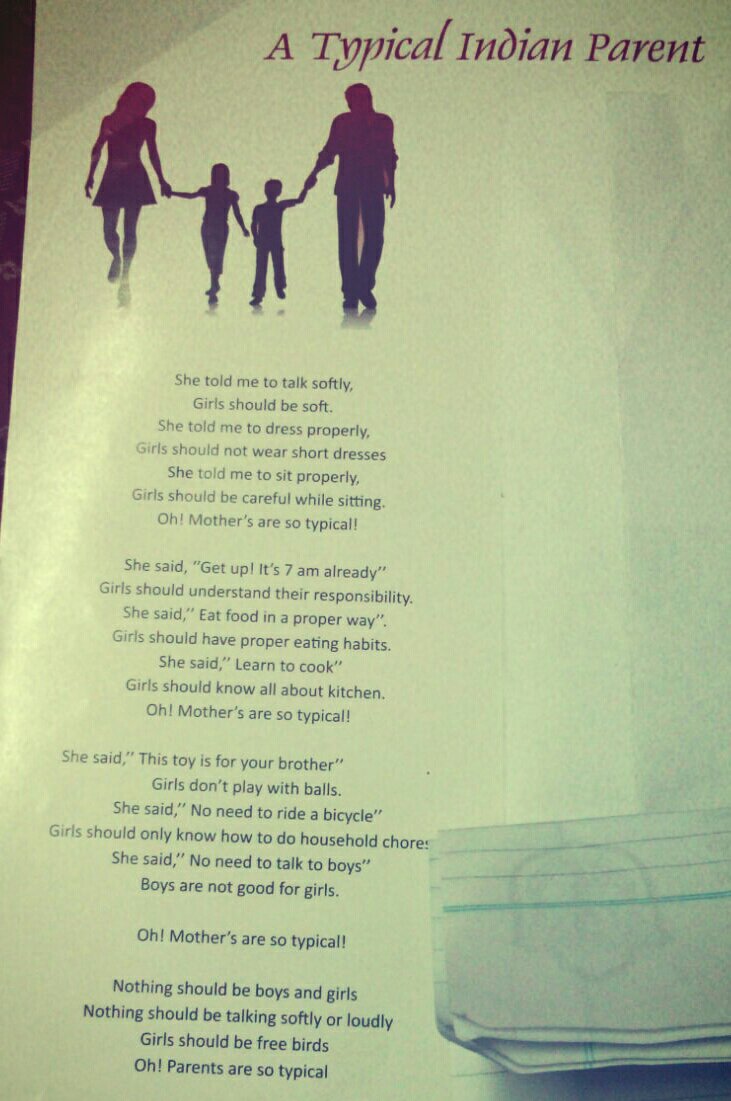 A Typical Indian Parent
She told me to talk softly,
Girls should be soft.
She told me to dress properly,
Girls should not wear short dresses
She told me to sit properly,
Girls should be careful while sitting.
Oh! Mother's are so typical!
She said, "Get up! It's 7 am already"
Girls should understand their responsibility.
She said," Eat food in a proper way".
Girls should have proper eating habits.
She said," Learn to cook"
Girls should know all about kitchen.
Oh! Mother's are so typical!
She said," This toy is for your brother"
Girls don't play with balls.
She said," No need to ride a bicycle"
Girls should only know how to do household chores
She said," No need to talk to boys"
Boys are not good for girls.
Oh! Mother's are so typical!
Nothing should be boys and girls
Nothing should be talking softly or loudly
Girls should be free birds
Oh! Parents are so typical